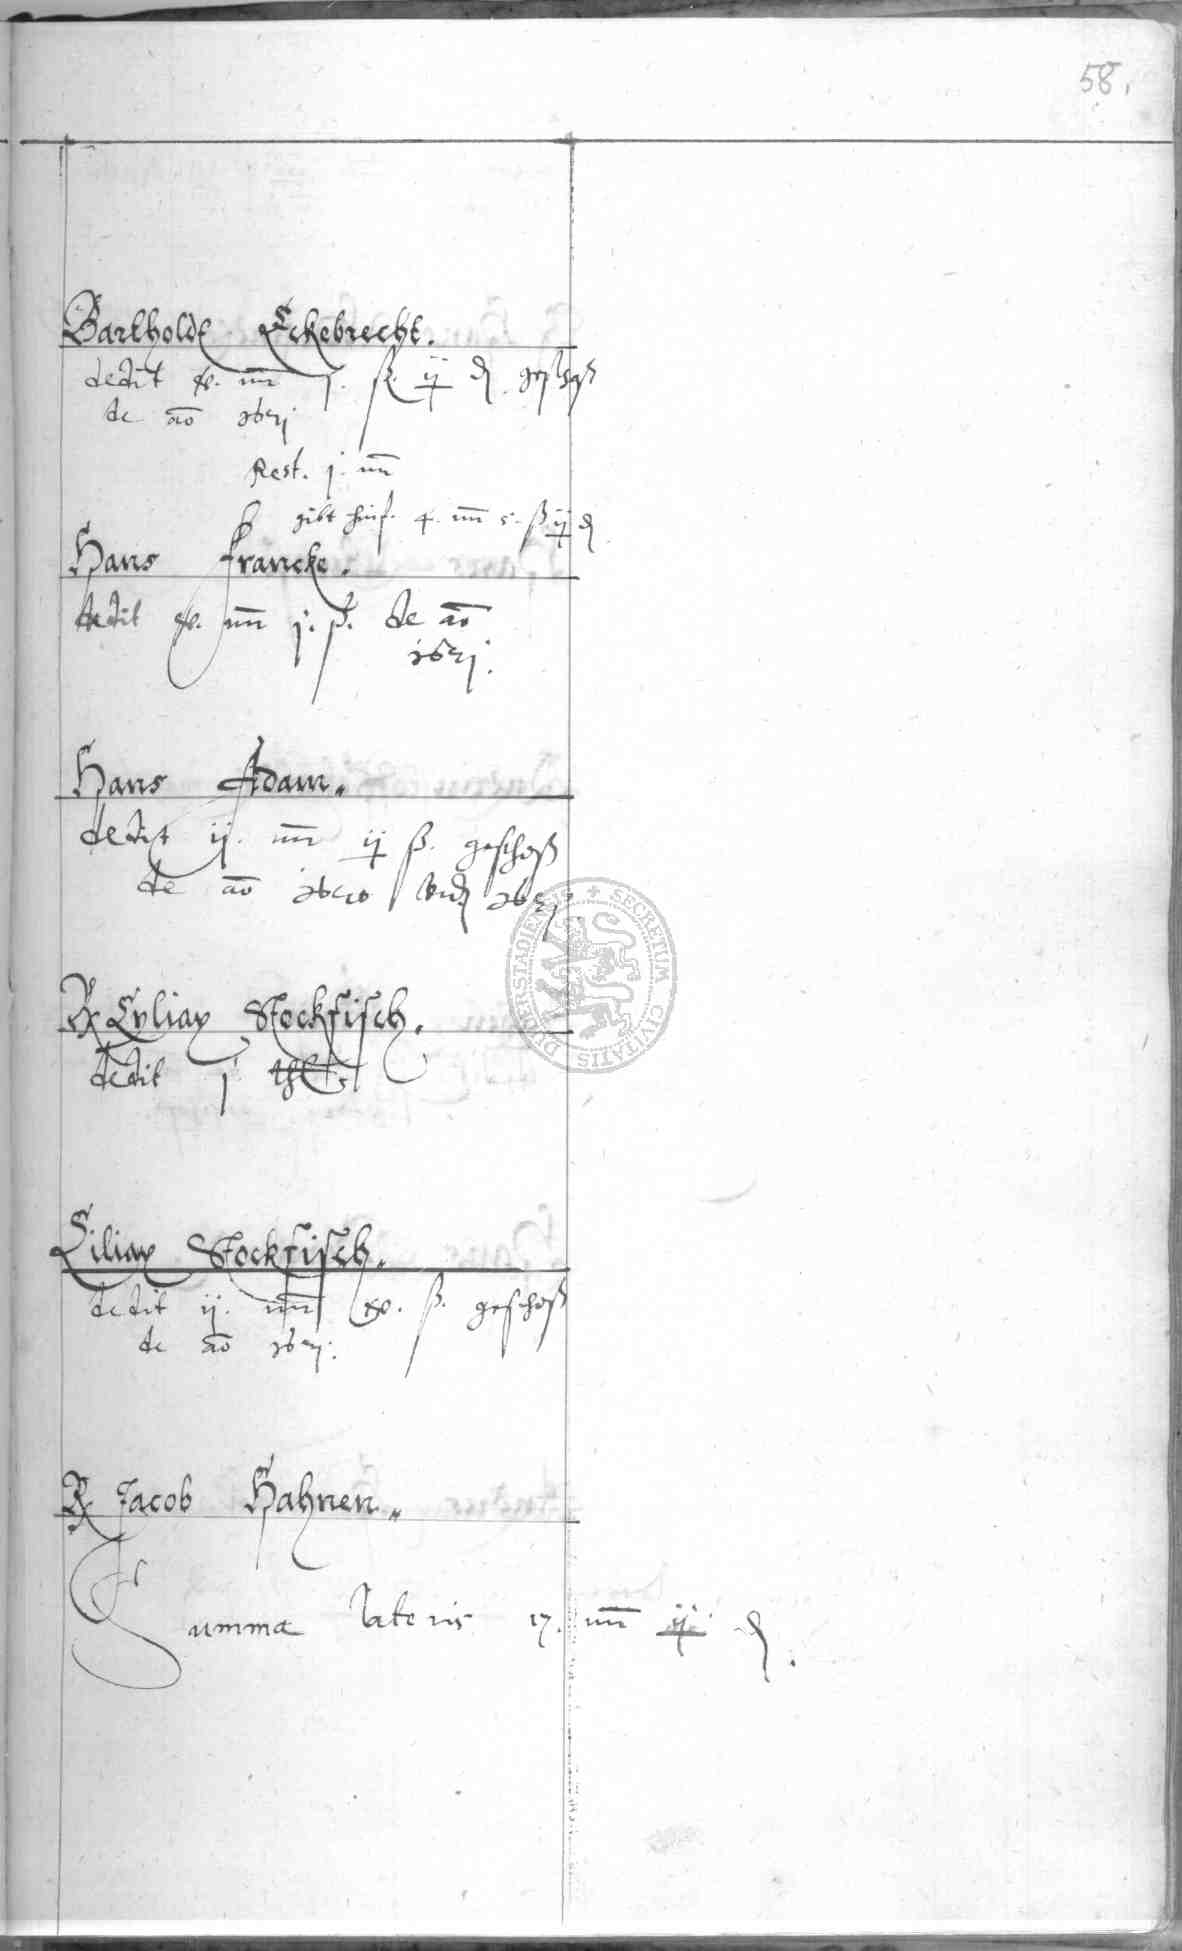 58.
Bartholdt Eckebrecht.
dedit iiij. mr j. ß. ij ₰ geschoß
de ao 1651
Rest. j. mr
gibt hinf. 4. mr 5. ß ij ₰
Hans Francke.
dedit iiij. mr j. ß. de ao
1651.
Hans Adam.
dedit ij. mr ij ß. geschoß
de ao 1650 vnd 1651
Cyliax Stockfisch.
dedit j thl.
Ciliax Stockfisch.
dedit ij. mr ß. geschoß
de ao 1651.
Jacob Hahnen.
Summa lateris 17. mr ij ₰.
SECRETUM CIVITATIS DUDERSTADIENSIS